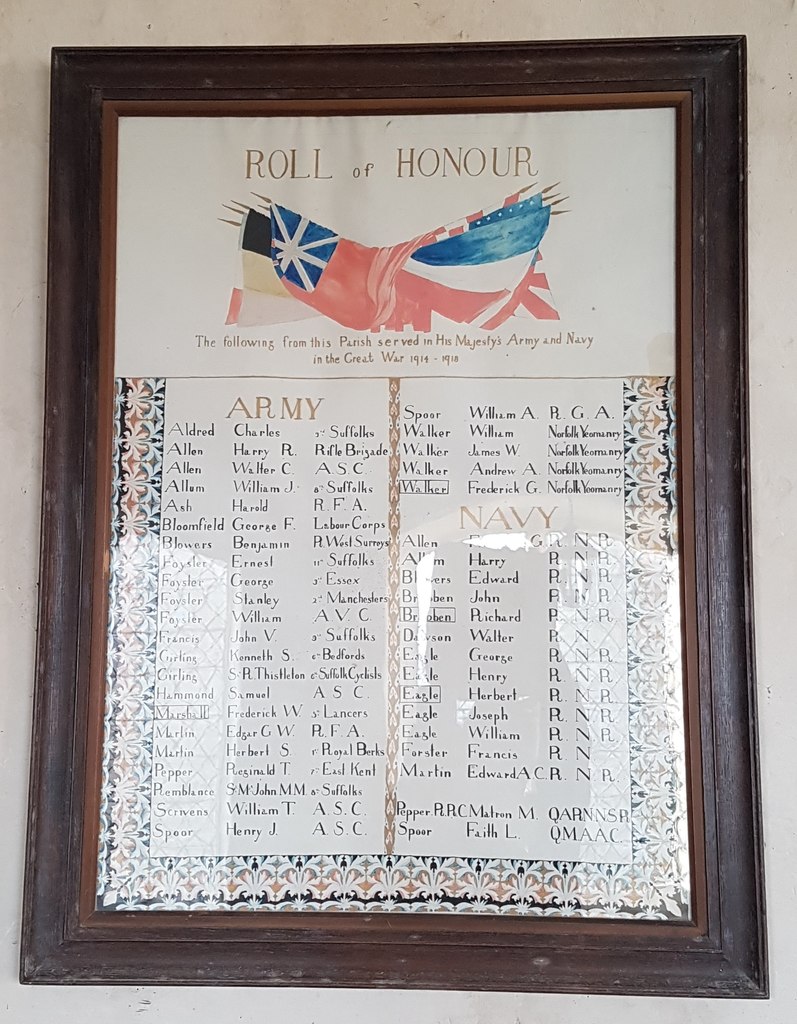 ROLL of HONOUR
The following from this Parish served in His Majesty's Army and Navy
in the Great War 1914 - 1918
ARMY
Aldred Charles 3rd Suffolks
Allen Harry R. Rifle Brigade
Allen Walter C. A.S.C.
Allum William J. 8th Suffolks
Ash Harold R.F.A.
Bloomfield George F. Labour Corps
Blowers Benjamin R. West Surreys
Foyster Ernest 11th Suffolks
Foyster George 3rd Essex
Foyster Stanley 2nd Manchesters
Foyster William A.V.C.
Francis John V. Suffolks
Girling Kenneth S. 6th Bedfords
Girling S. R. Thistleton 6th Suffolk Cyclists
Hammond Samuel A.S.C.
Marshall Frederick W. 5th Lancers
Martin Edgar G.W. R.F.A.
Martin Herbert S. 1st Royal Berks
Pepper Reginald T. 7th East Kent
Remblance St John M.M. 8th Suffolks
Scrivens William T. A.S.C.
Spoor Henry J. A.S.C.
Spoor William A. R.G.A.
Walker William Norfolk Yeomanry
Walker James W. Norfolk Yeomanry
Walker Andrew A. Norfolk Yeomanry
Walker Frederick G. Norfolk Yeomanry
NAVY
Allen G. R.N.R.
Allum Harry R.N.R.
Blowers Edward R.N.R.
Brooben John R.N.R.
Brooben Richard R.N.R.
Dawson Walter R.N.
Eagle George R.N.R.
Eagle Henry R.N.R.
Eagle Herbert R.N.R.
Eagle Joseph R.N.R.
Eagle William R.N.R.
Forster Francis R.N.
Martin Edward A.C. R.N.R.
Pepper R.R.C Matron M. QARNNSR
Spoor Faith L. QMAAC.